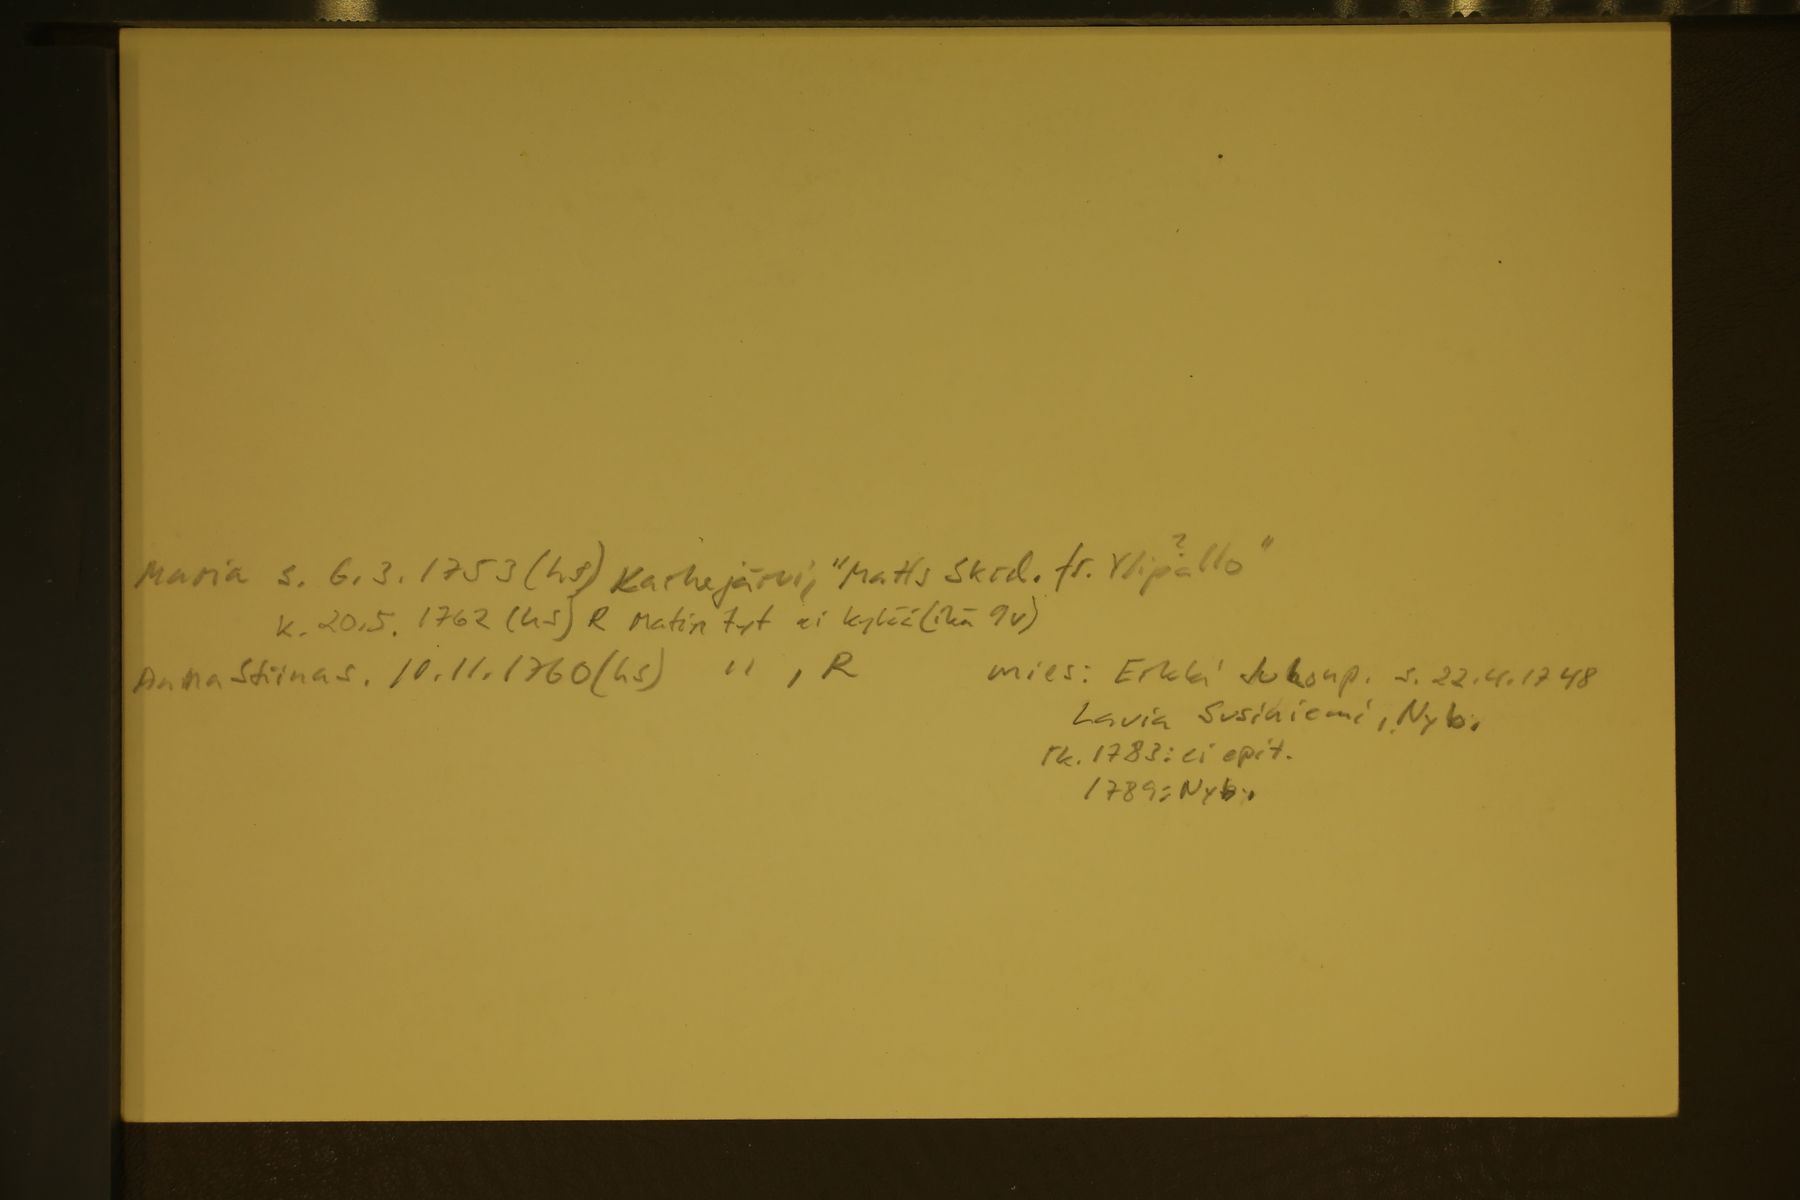 Maria s. 6.3.1753 (hs) Karhejärvi, "Matts Skrd. fr. Ylipållo" ?
k. 20.5. 1762 (hs) R Matin tyt ei kylää (ikä 9v)
Anna Stiina s. 10.11.1760 (hs) " , R mies: Erkki Juhonp. s. 22.4.1748
Lavia Susiniemi, Nyb.
rk. 1783: ei epit.
1789: Nyb.